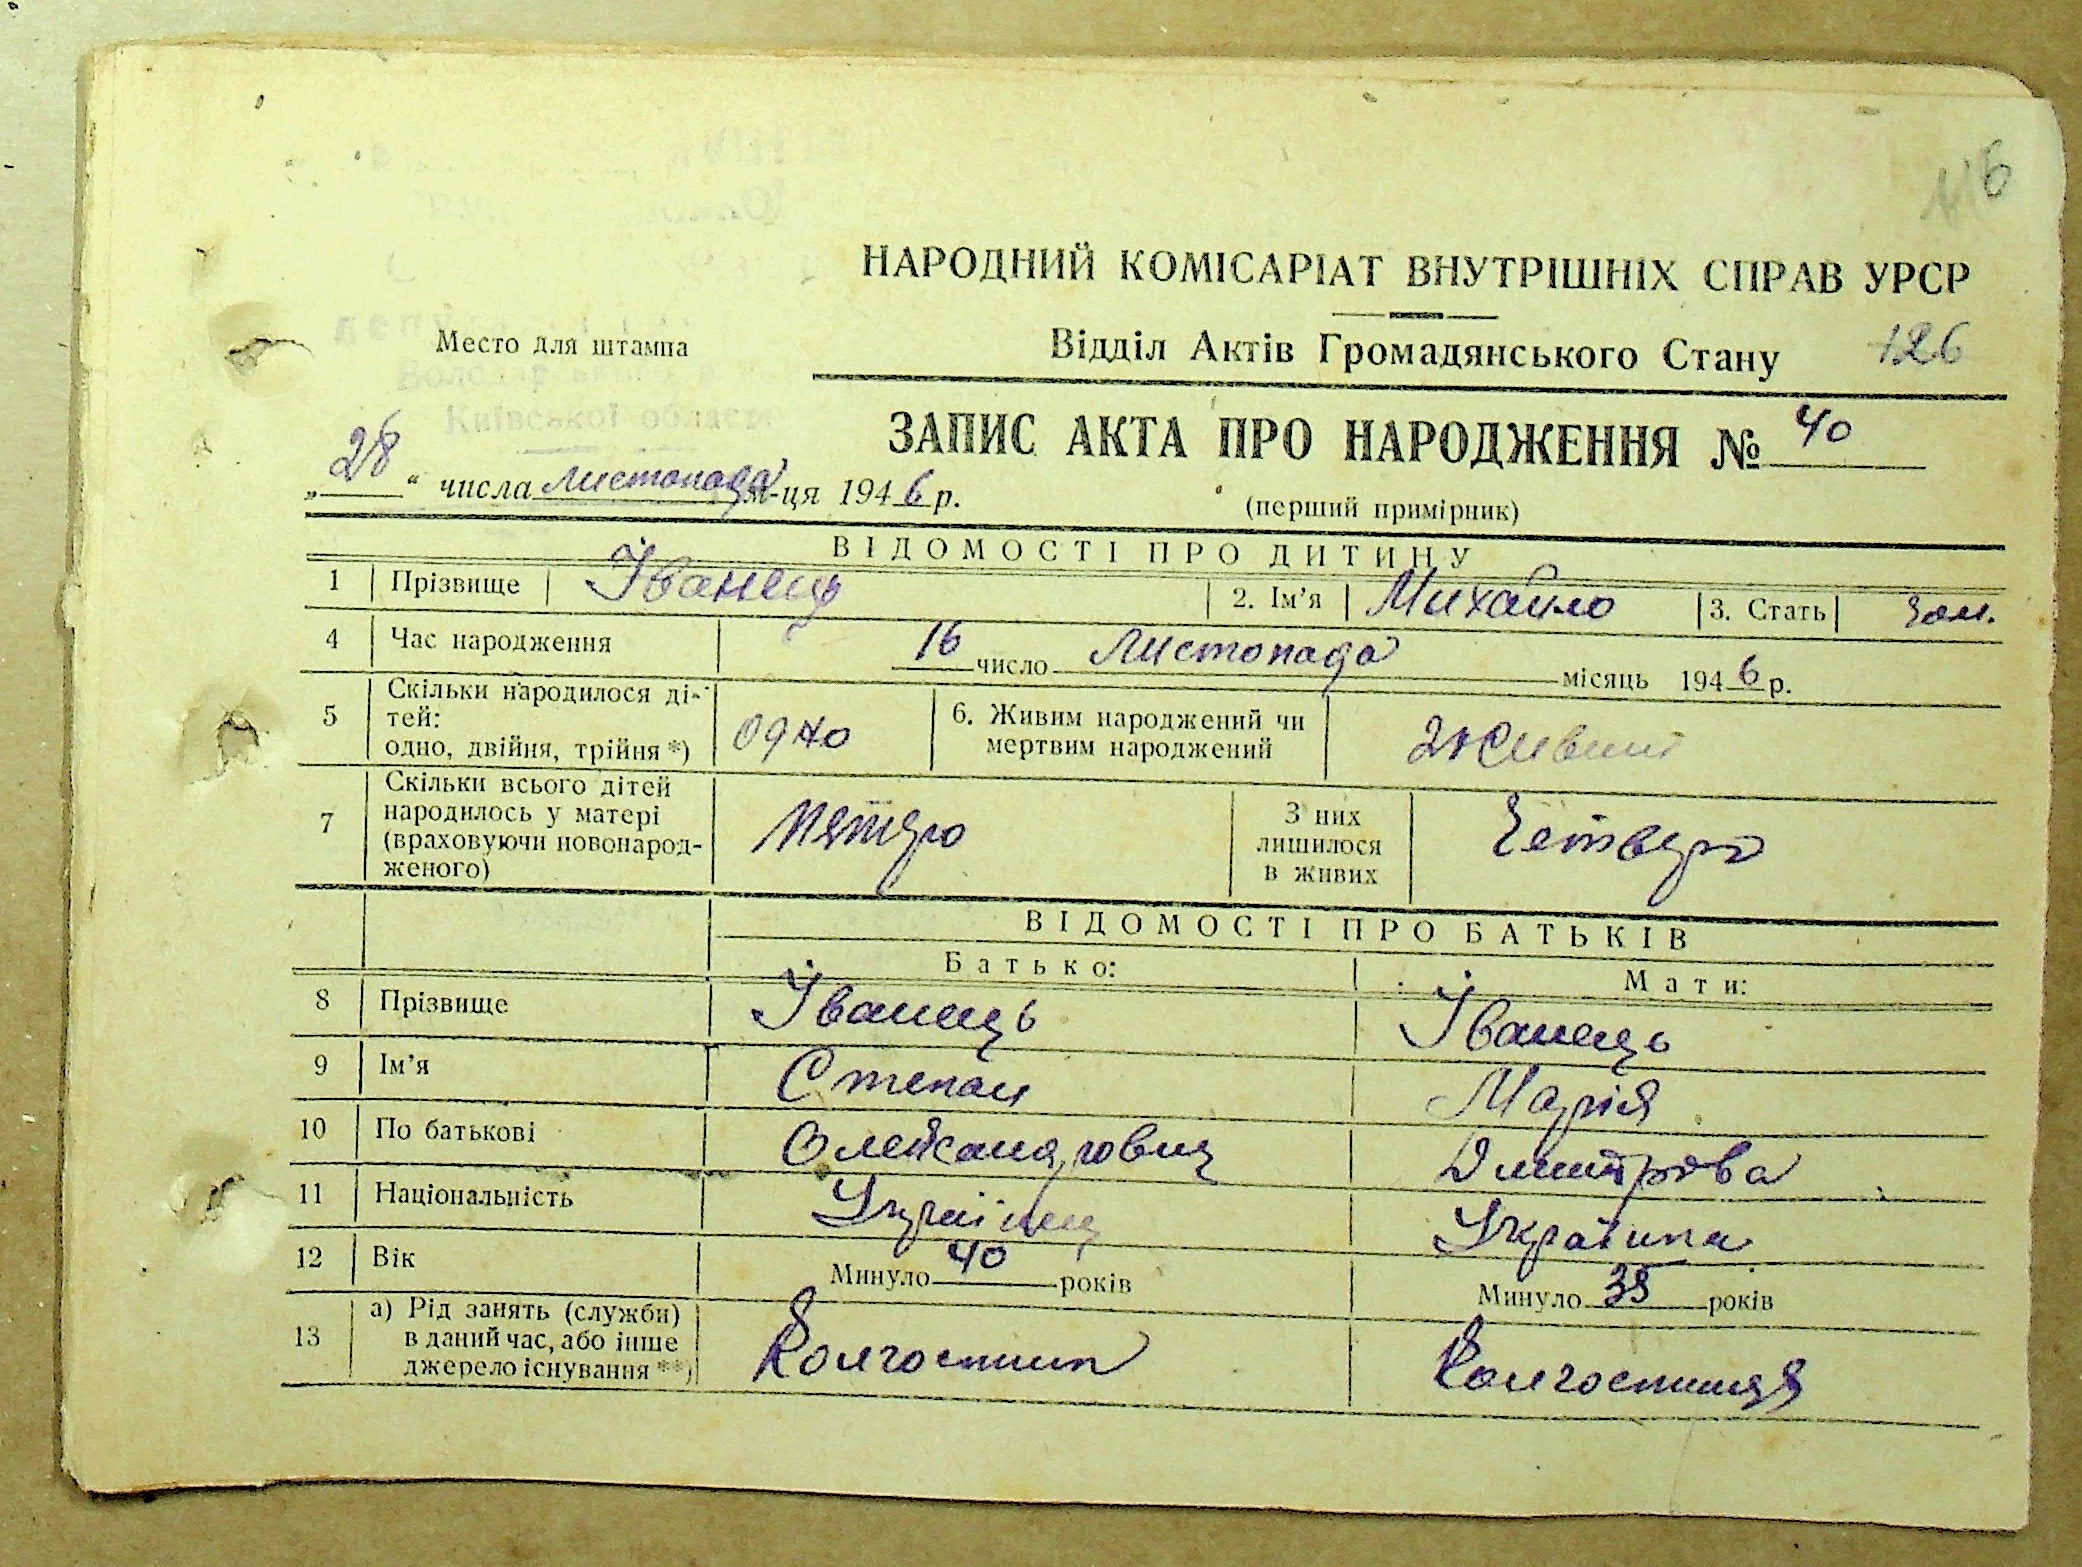 116
НАРОДНИЙ КОМІСАРІАТ ВНУТРІШНІХ СПРАВ УРСР
Место для штампа
Відділ Актів Громадянського Стану 126
Київської області
ЗАПИС АКТА ПРО НАРОДЖЕННЯ № 40
„28“ числа листопада м-ця 1946 р.
(перший примірник)
ВІДОМОСТІ ПРО ДИТИНУ
1 Прізвище Іванець 2. Ім'я Михайло 3. Стать чол.
4 Час народження 16 число листопада місяць 1946 р.
5 Скільки народилося ді-
тей:
одно, двійня, трійня *) одно
6. Живим народжений чи
мертвим народжений Живий
7 Скільки всього дітей
народилось у матері
(враховуючи новонарод-
женого) пятеро
З них
лишилося
в живих Четверо
ВІДОМОСТІ ПРО БАТЬКІВ
Батько: Мати:
8 Прізвище Іванець Іванець
9 Ім'я Степан Марія
10 По батькові Олександрович Дмитрова
11 Національність Українец Українка
12 Вік Минуло 40 років Минуло 38 років
13 а) Рід занять (служби)
в даний час, або інше
джерело існування **) Колгоспник Колгоспниця